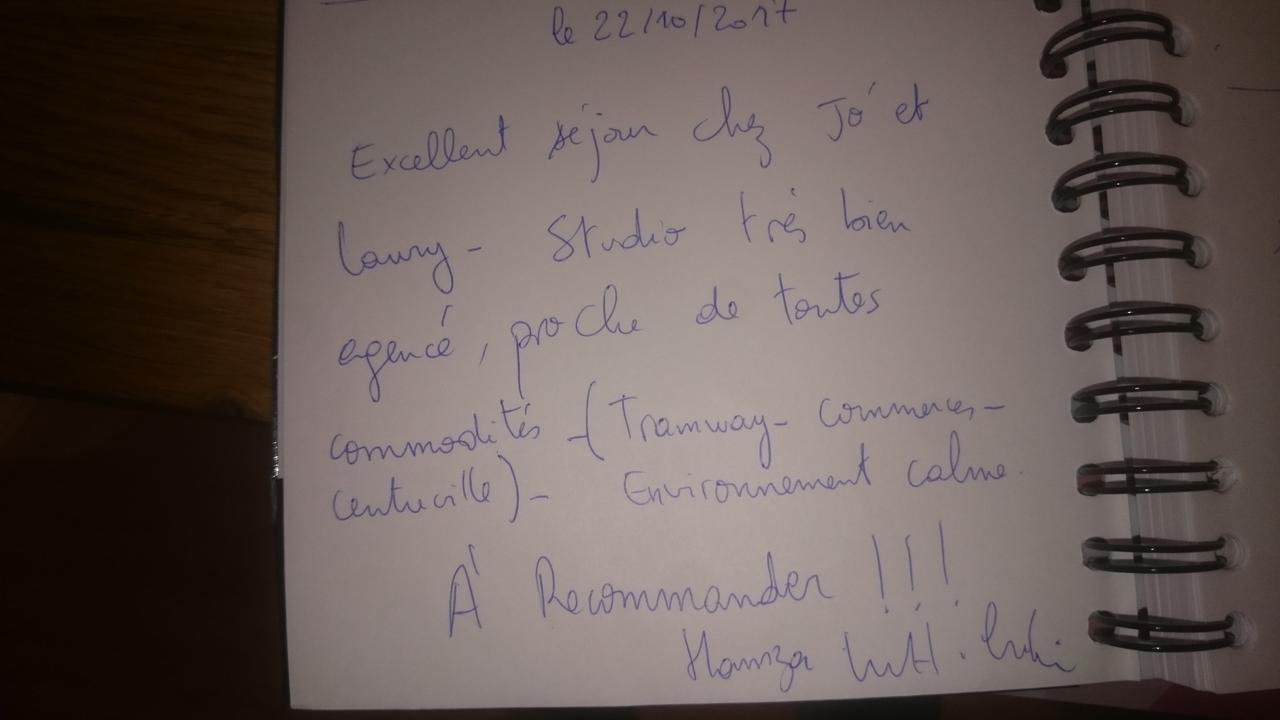 le 22/10/2017
Excellent séjour chez Jo et
Laury - Studio très bien
agencé, proche de toutes
commodités - (Tramway - commerces -
centreville) - Environnement calme.
À Recommander !!!
Hamza